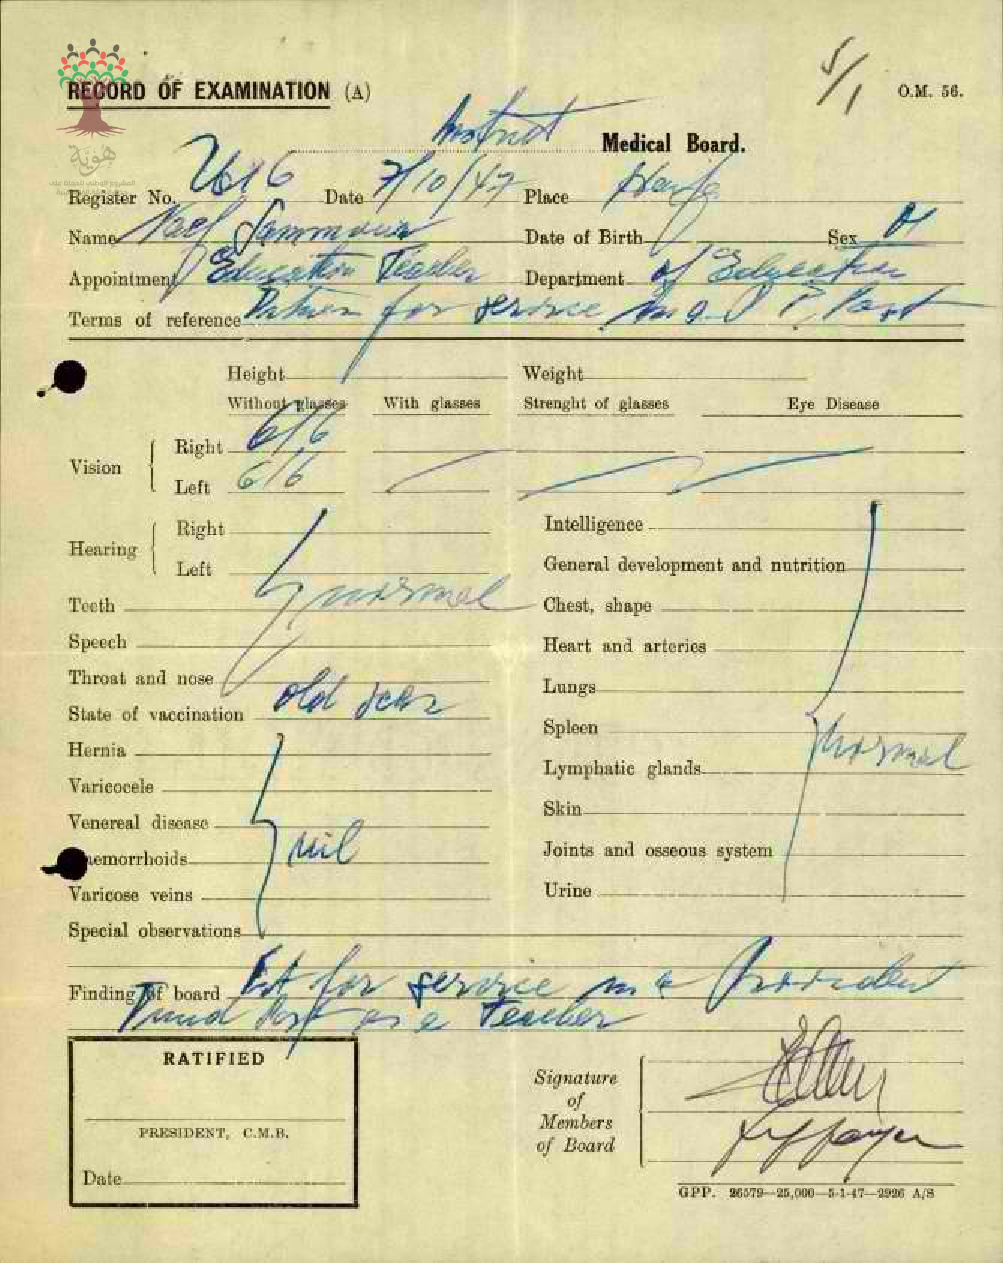 5/1
RECORD OF EXAMINATION (A) O.M. 56.
هوية
District Medical Board.
Register No. Date 7/10/47 Place Haifa
Name Sammour Date of Birth Sex M
Appointment Education Teacher Department of Education
Terms of reference for service in a P. Post
Height Weight
Without glasses With glasses Strenght of glasses Eye Disease
Vision
Right 6/6
Left 6/6
Hearing
Right
Left
Teeth normal
Speech
Throat and nose
State of vaccination old scar
Hernia
Varicocele
Venereal disease
nil
aemorrhoids
Varicose veins
Special observations
Intelligence
General development and nutrition
Chest, shape
Heart and arteries
Lungs
Spleen
normal
Lymphatic glands
Skin
Joints and osseous system
Urine
Finding of board Fit for service in a Provident
Fund post as a Teacher
RATIFIED
PRESIDENT, C.M.B.
Date
Signature
of
Members
of Board
GPP. 26579—25,000—5-1-47—2926 A/S